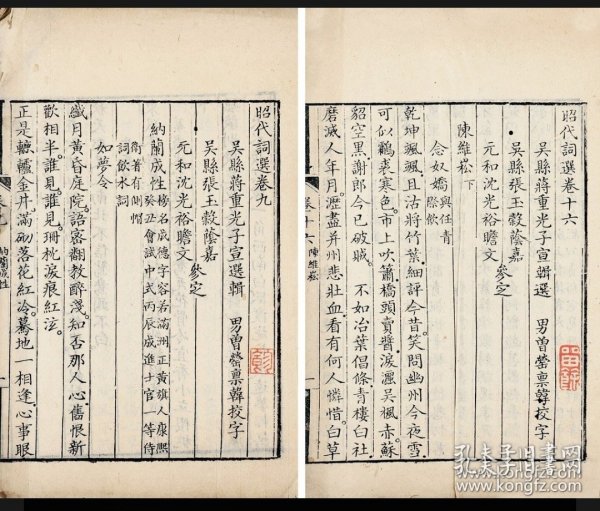 昭代詞選卷十六
吳縣蔣重光子宣輯選　男曾㷀稟韓挍字
吳縣張玉縠蔭嘉
元和沈光裕瞻文　參定
陳維崧下
念奴嬌與任青際飲
乾坤颯颯且沽將竹葉細評今昔笑問幽州今夜雪
可似鸘裘寒色市上吹簫橋頭賣醬淚灑吳楓赤蘇
貂空黑謝郎今已破賊　不如冶葉倡條青樓白社
磨滅人年月瀝盡幷州悲壯血看有何人憐惜白草
卷十六　陳維崧
昭代詞選卷九
吳縣蔣重光子宣選輯　男曾㷀稟韓挍字
吳縣張玉縠蔭嘉
元和沈光裕瞻文　參定
納蘭成性
榜名成德字容若滿洲正黃旗人康熙
癸丑會試中式丙辰成進士官一等侍
衞著有側帽
詞飲水詞
如夢令
纖月黃昏庭院語密翻敎醉淺知否那人心舊恨新
歡相半誰見誰見珊枕淚痕紅泫
正是轆轤金井滿砌落花紅冷驀地一相逢心事眼
卷九　納蘭成性　一
孔夫子旧书网
www.kongfz.com